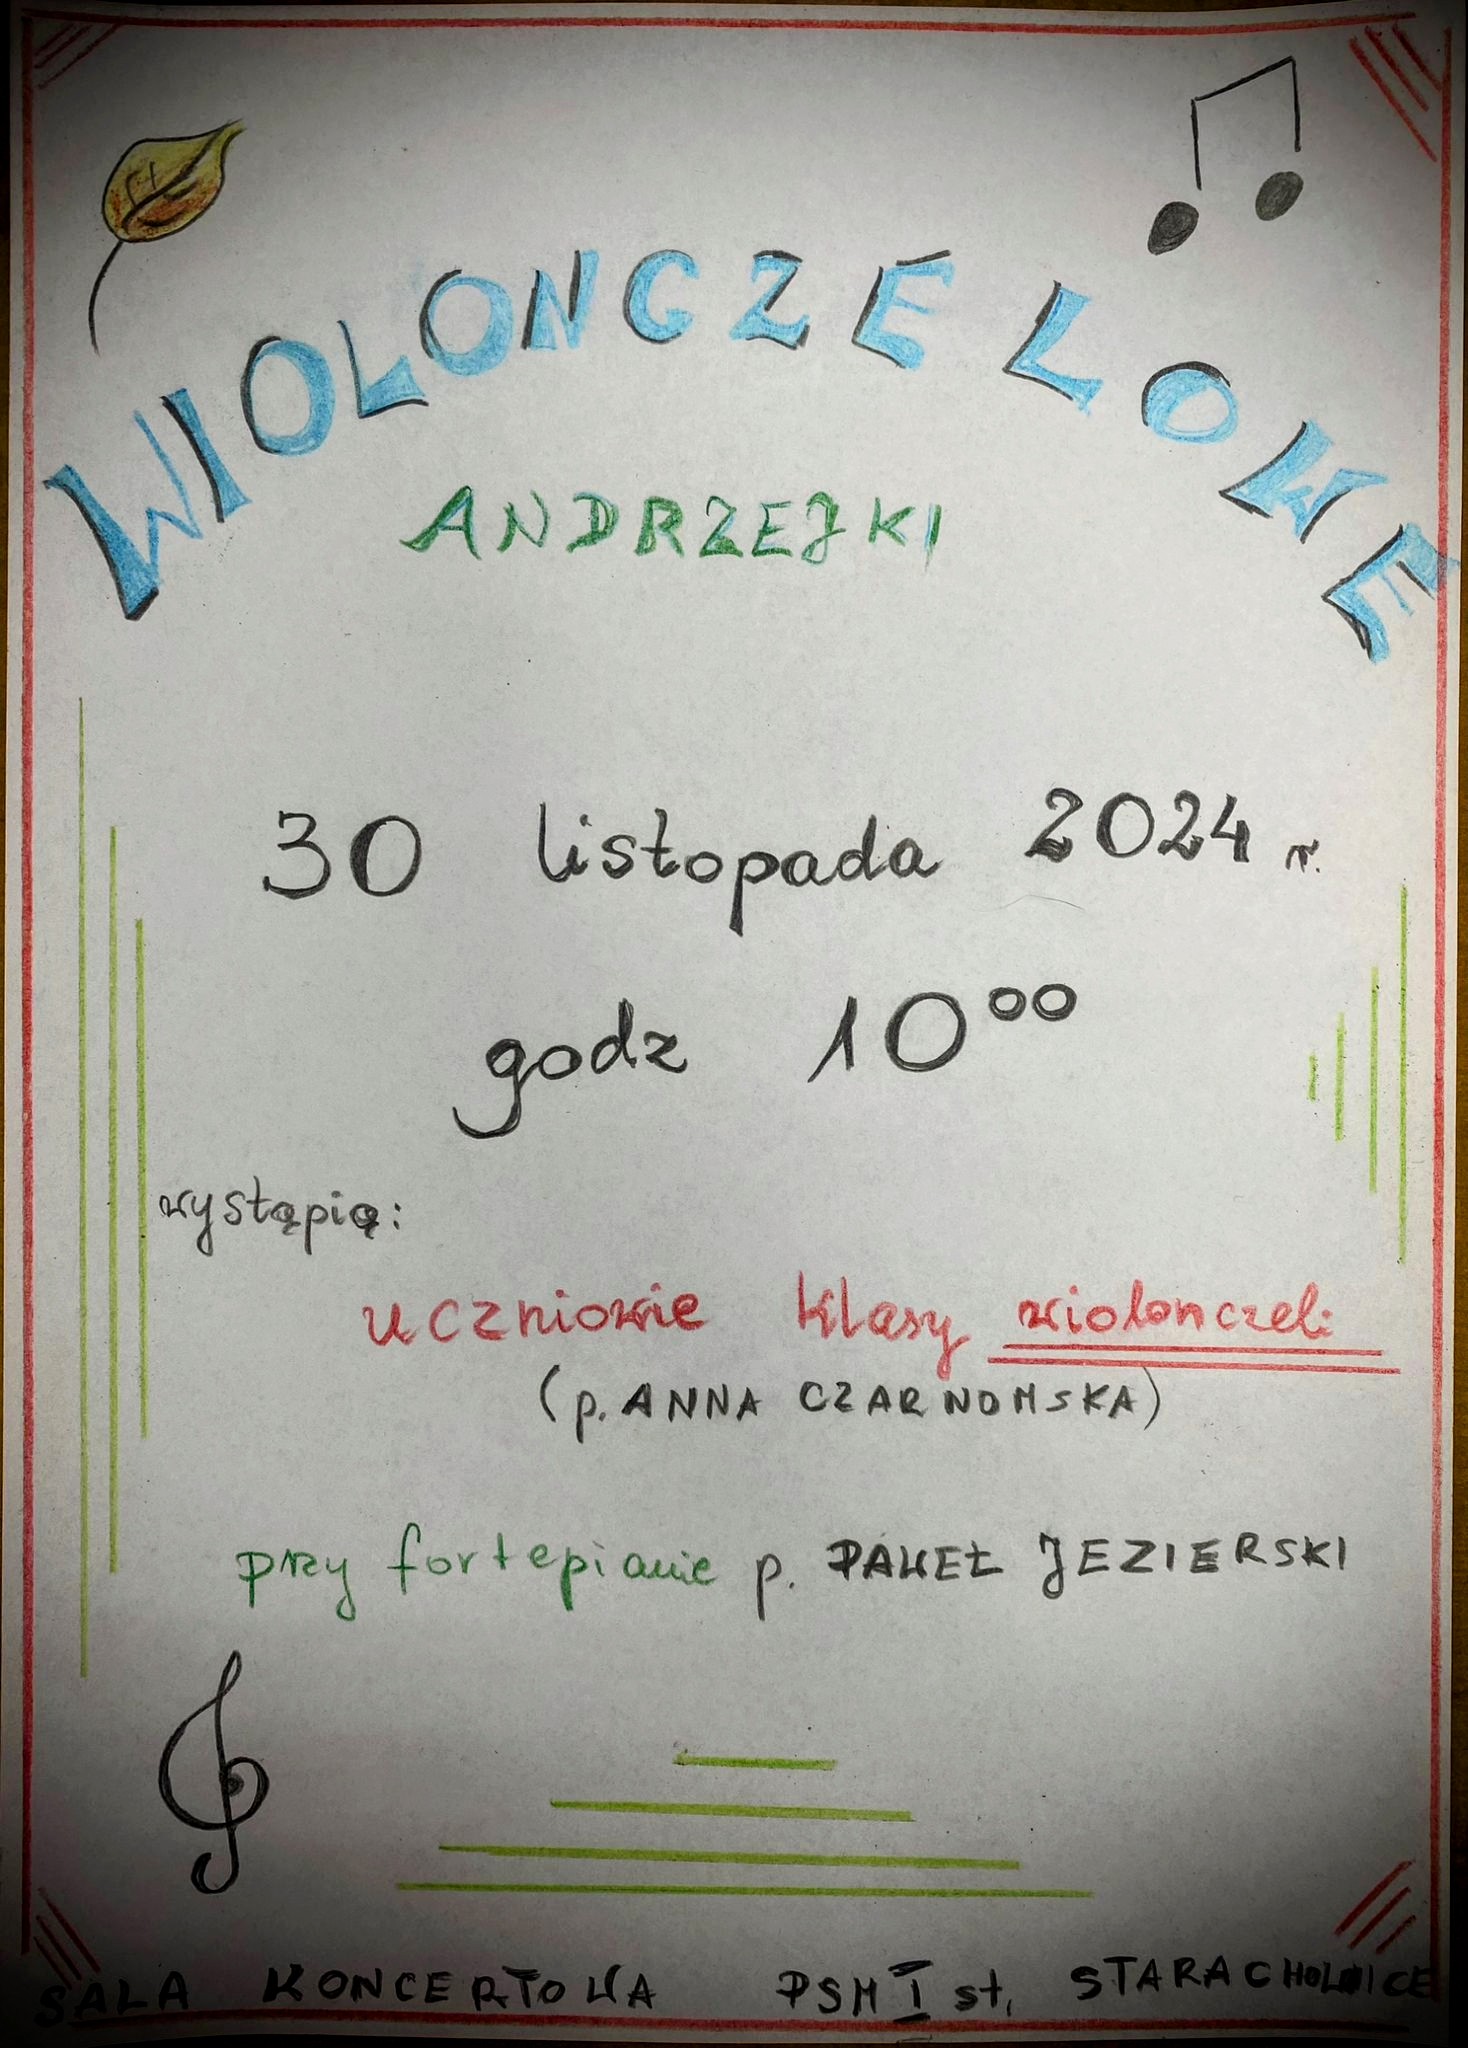 WIOLONCZELOWE
ANDRZEJKI
30 listopada 2024 r.
godz 10⁰⁰
wystąpią:
uczniowie klasy wiolonczeli
(p. ANNA CZARNOMSKA)
przy fortepianie p. PAWEŁ JEZIERSKI
SALA KONCERTOWA PSM I st. STARACHOWICE